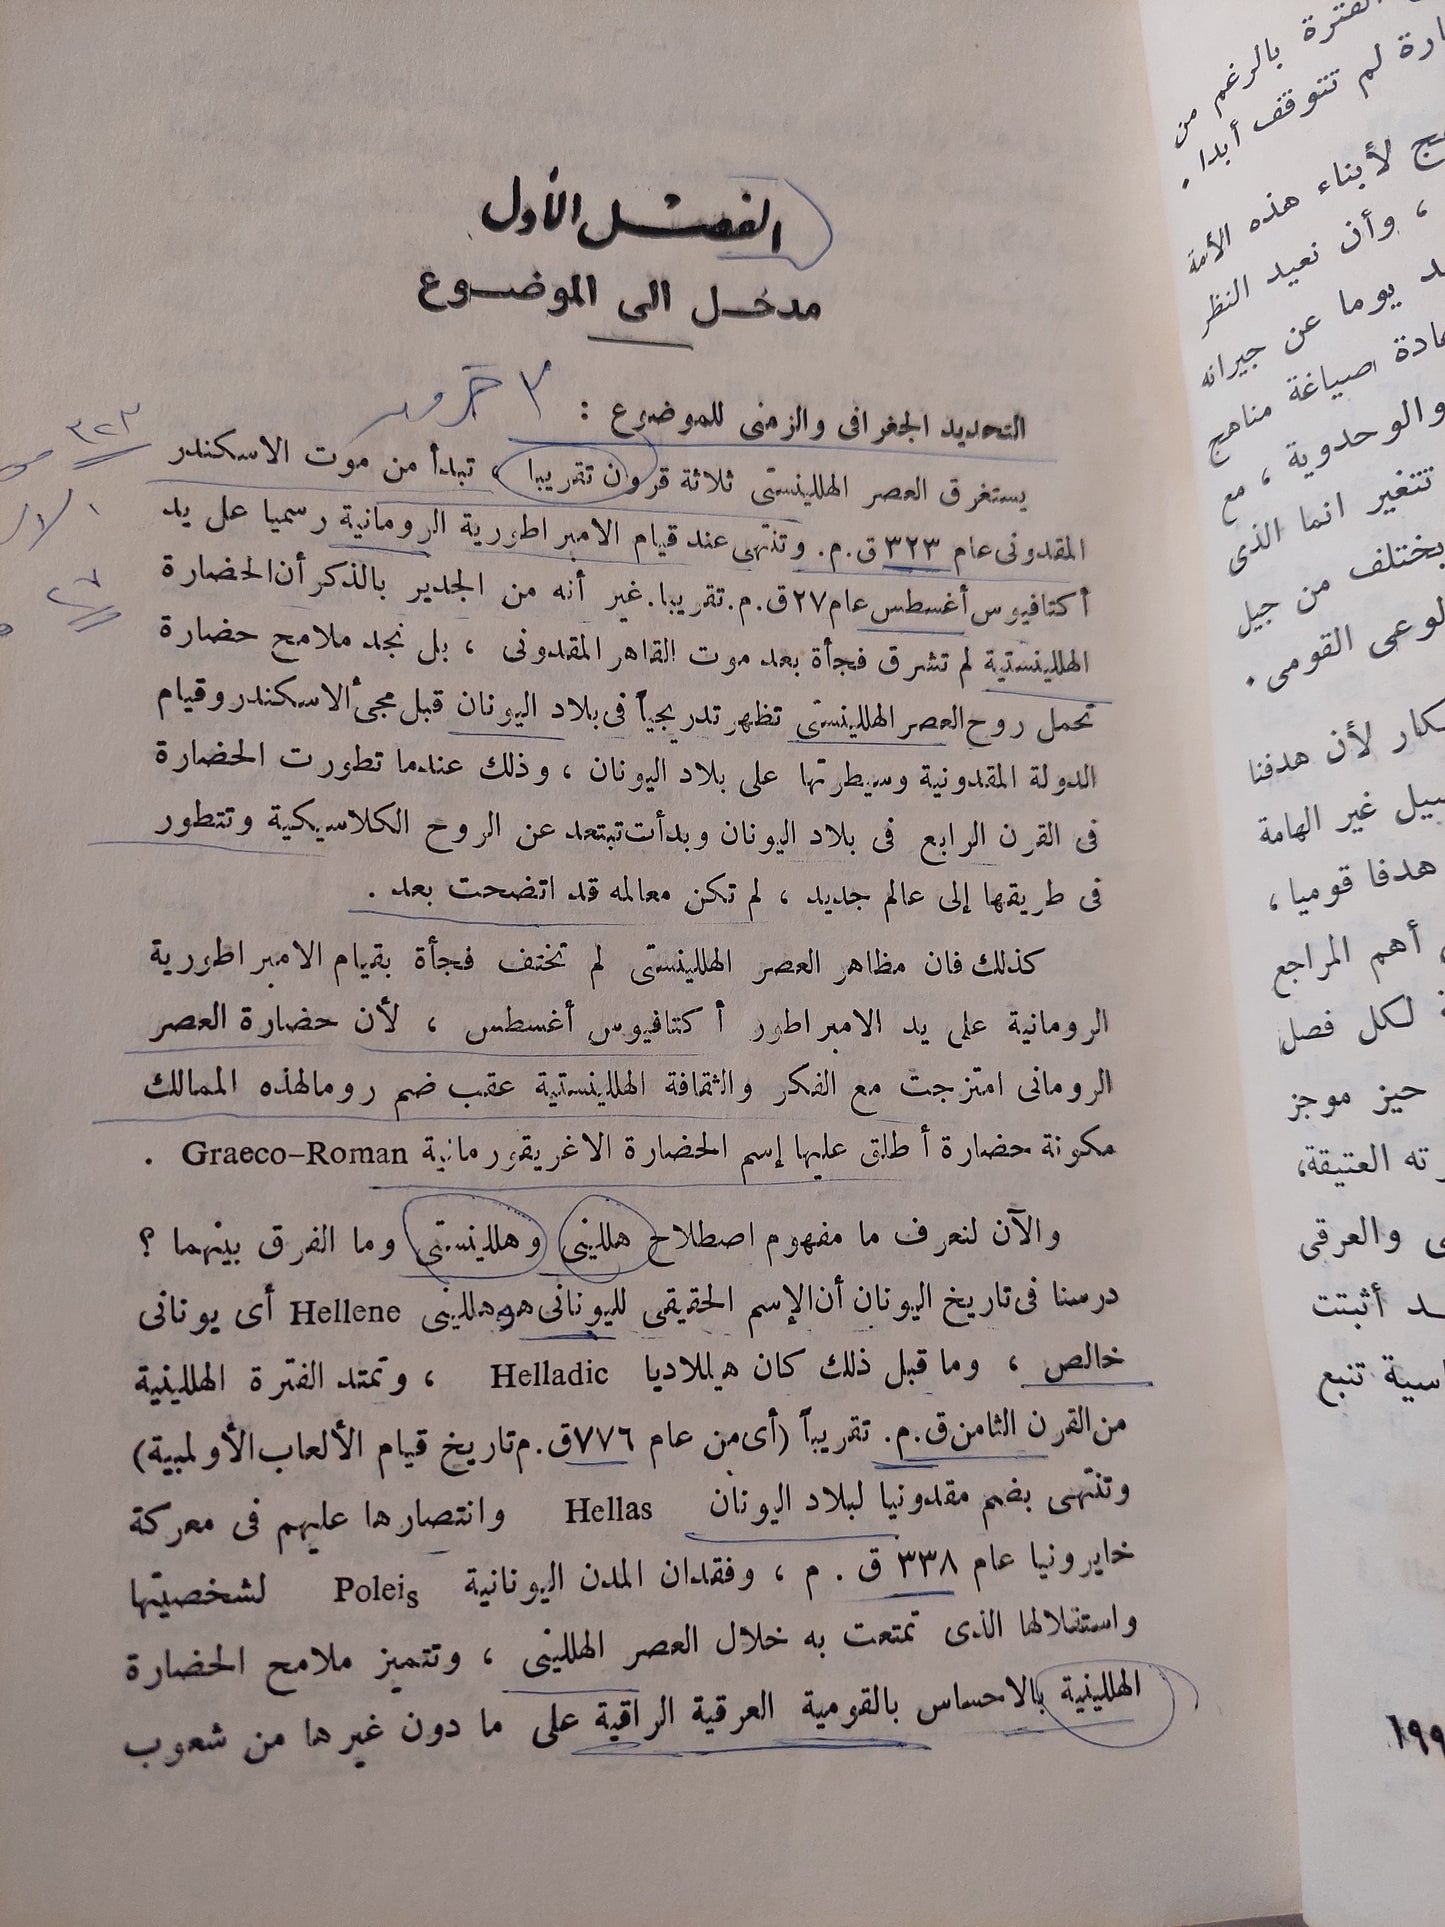 الفصل الأول
مدخل الى الموضوع
٣ قرون
التحديد الجغرافى والزمنى للموضوع :
٣٢٣
يستغرق العصر الهللينستى ثلاثة قرون تقريبا ، تبدأ من موت الاسكندر
المقدونى عام ٣٢٣ ق.م. وتنتهى عند قيام الامبراطورية الرومانية رسميا على يد
٢٧
أكتافيوس أغسطس عام ٢٧ ق.م. تقريبا. غير أنه من الجدير بالذكر أن الحضارة
الهللينستية لم تشرق فجأة بعد موت القاهر المقدونى ، بل نجد ملامح حضارة
تحمل روح العصر الهللينستى تظهر تدريجياً فى بلاد اليونان قبل مجئ الاسكندر وقيام
الدولة المقدونية وسيطرتها على بلاد اليونان ، وذلك عندما تطورت الحضارة
فى القرن الرابع فى بلاد اليونان وبدأت تبتعد عن الروح الكلاسيكية وتتطور
فى طريقها إلى عالم جديد ، لم تكن معالمه قد اتضحت بعد .
كذلك فان مظاهر العصر الهللينستى لم تختف فجأة بقيام الامبراطورية
الرومانية على يد الامبراطور أكتافيوس أغسطس ، لأن حضارة العصر
الرومانى امتزجت مع الفكر والثقافة الهللينستية عقب ضم روما لهذه الممالك
مكونة حضارة أطلق عليها إسم الحضارة الاغريقورمانية Graeco–Roman .
والآن لنعرف ما مفهوم اصطلاح هللينى وهللينستى وما الفرق بينهما ؟
درسنا فى تاريخ اليونان أن الإسم الحقيقى لليونانى هو هللينى Hellene أى يونانى
خالص ، وما قبل ذلك كان هيللاديا Helladic ، وتمتد الفترة الهللينية
من القرن الثامن ق.م. تقريباً (أى من عام ٧٧٦ ق.م تاريخ قيام الألعاب الأولمبية)
وتنتهى بضم مقدونيا لبلاد اليونان Hellas وانتصارها عليهم فى معركة
خايرونيا عام ٣٣٨ ق . م ، وفقدان المدن اليونانية Poleis لشخصيتها
واستقلالها الذى تمتعت به خلال العصر الهللينى ، وتتميز ملامح الحضارة
الهللينية بالاحساس بالقومية العرقية الراقية على ما دون غيرها من شعوب
الفترة بالرغم من
لم تتوقف أبدا .
لأبناء هذه الأمة
، وأن نعيد النظر
يوما عن جيرانه
صياغة مناهج
والوحدوية ، مع
تتغير انما الذى
يختلف من جيل
القومى .
لأن هدفنا
غير الهامة
هدفا قوميا ،
أهم المراجع
لكل فصل
حيز موجز
العتيقة،
والعرقى
أثبتت
تنبع